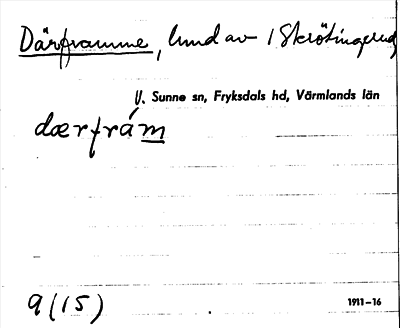 Därframme, lund av 1 Skrötingerud
V. Sunne sn, Fryksdals hd, Värmlands län
dærfrám
9(15)
1911-16